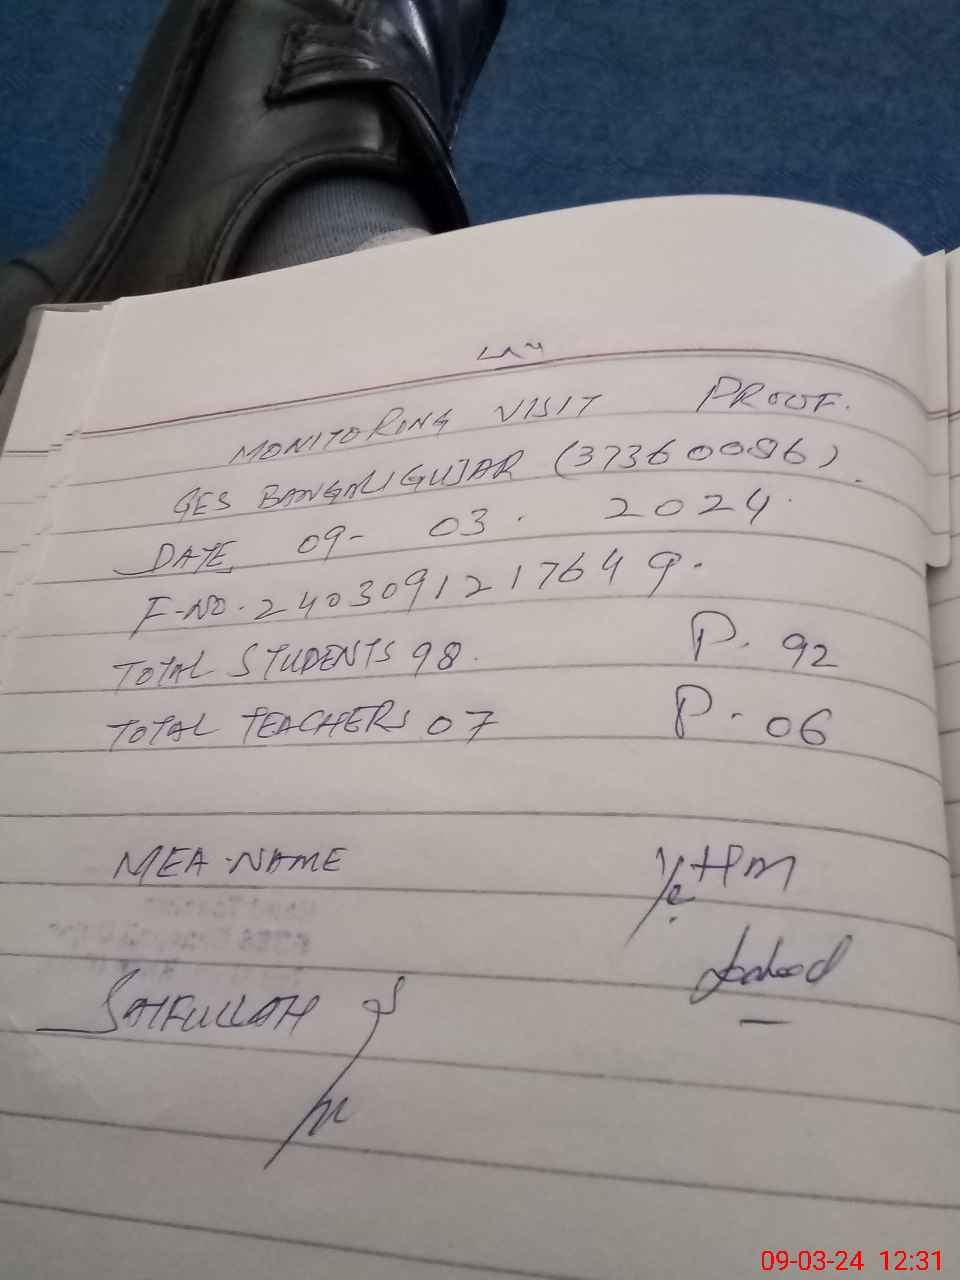 MONITORING VISIT PROOF.
GES BANGALI GUJAR (37360086).
DATE 09- 03. 2024.
F-NO. 2403091217649.
TOTAL STUDENTS 98. P. 92
TOTAL TEACHERS 07 P. 06
MEA-NAME HM
SAIFULLAH
09-03-24 12:31